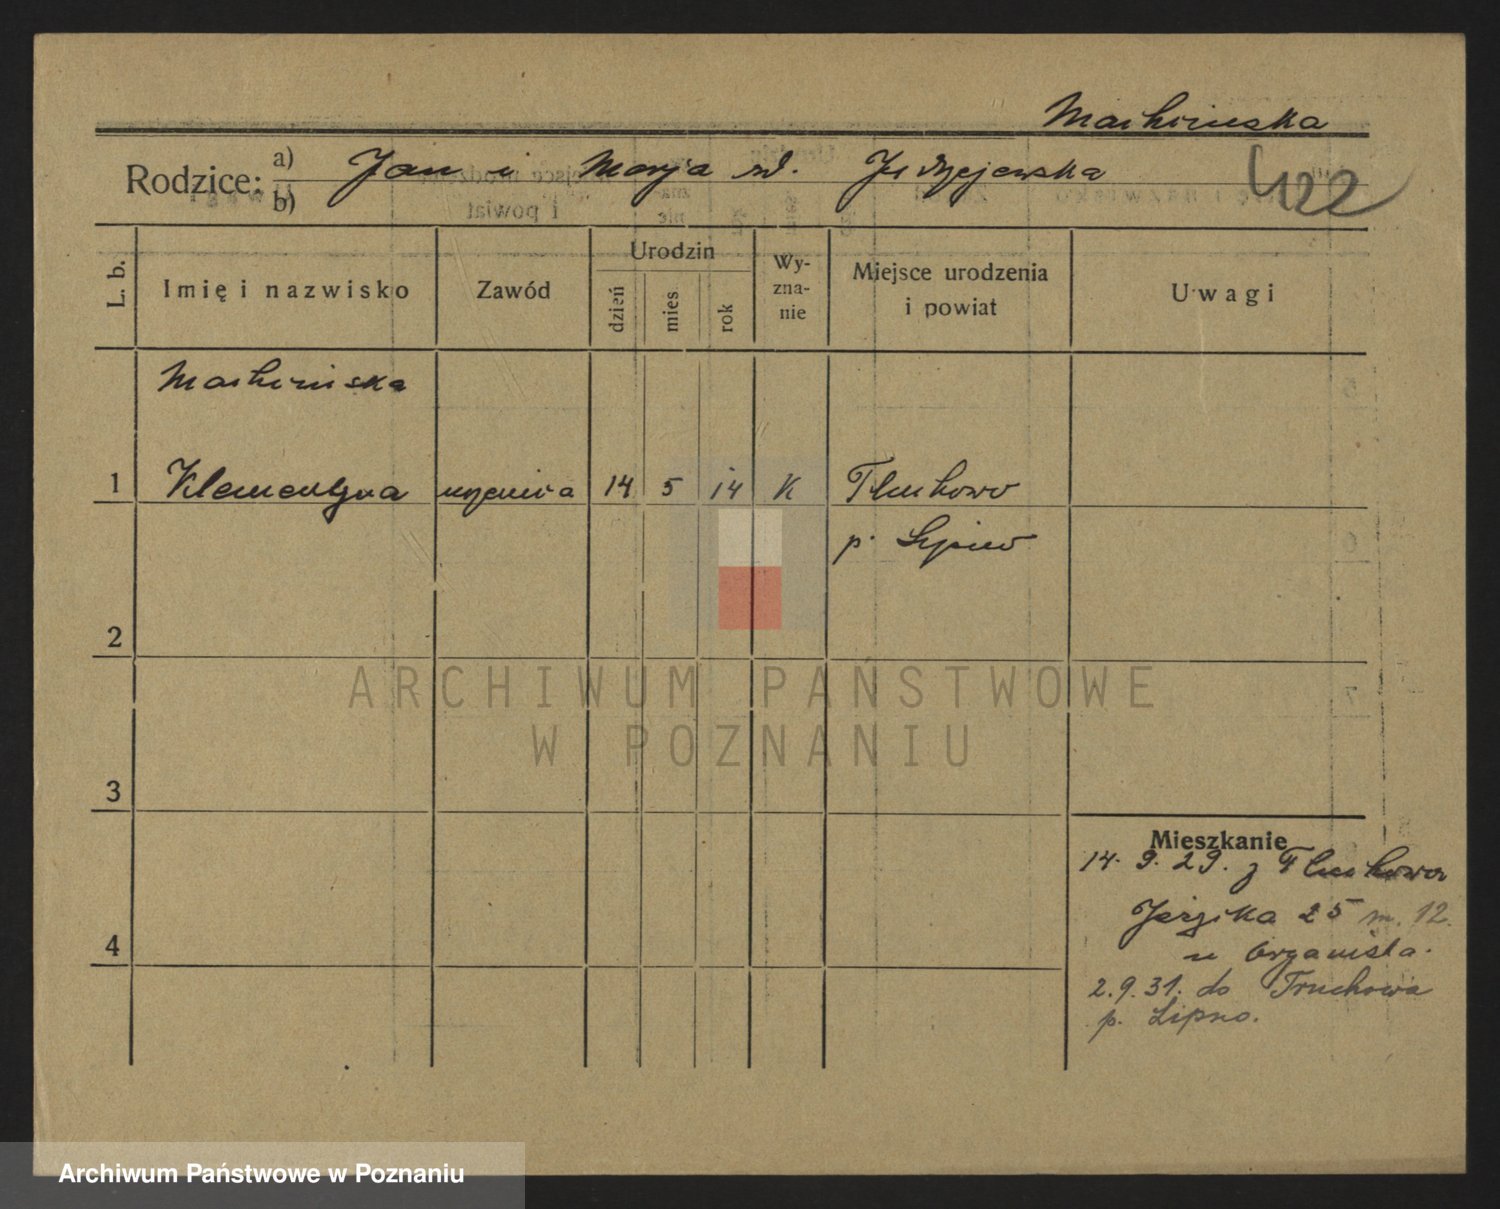 Machińska
Rodzice: a) Jan i Marja zd. Jędrzejewska
b)
422
L. b.
Imię i nazwisko
Zawód
Urodzin
dzień
mies
rok
Wy-
zna-
nie
Miejsce urodzenia
i powiat
Uwagi
Machińska
1 Klementyna uczenica 14 5 14 K Tłuchowo
p. Lipno
2
3
4
Mieszkanie
14. 9. 29. z Tłuchowa
25 m. 12.
u Organista.
2.9.31. do Truchowa
p. Lipno.
ARCHIWUM PAŃSTWOWE
W POZNANIU
Archiwum Państwowe w Poznaniu